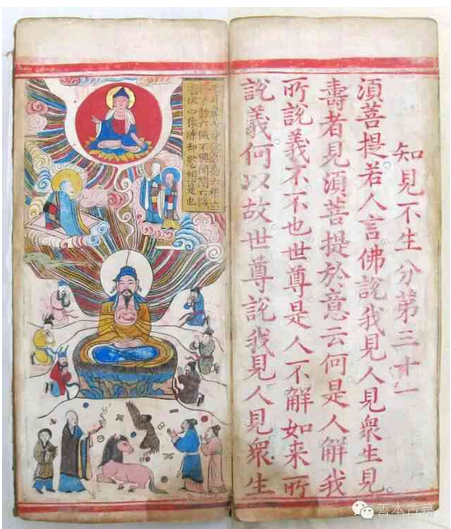 知見不生分第三十一
須菩提若人言佛說我見人見衆生見
壽者見須菩提於意云何是人解我
所說義不不也世尊是人不解如來所
說義何以故世尊說我見人見衆生
善本古籍